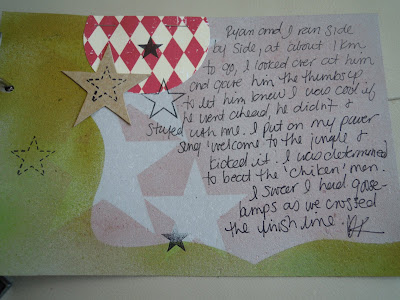 Ryan and I ran side
by side, at about 1km
to go, I looked over at him
and gave him the thumbs up
to let him know I was cool if
he went ahead, he didn't &
stayed with me. I put on my power
song 'welcome to the jungle' &
kicked it. I was determined
to beat the 'chiken' man.
I swear I had goose-
bumps as we crossed
the finish line.